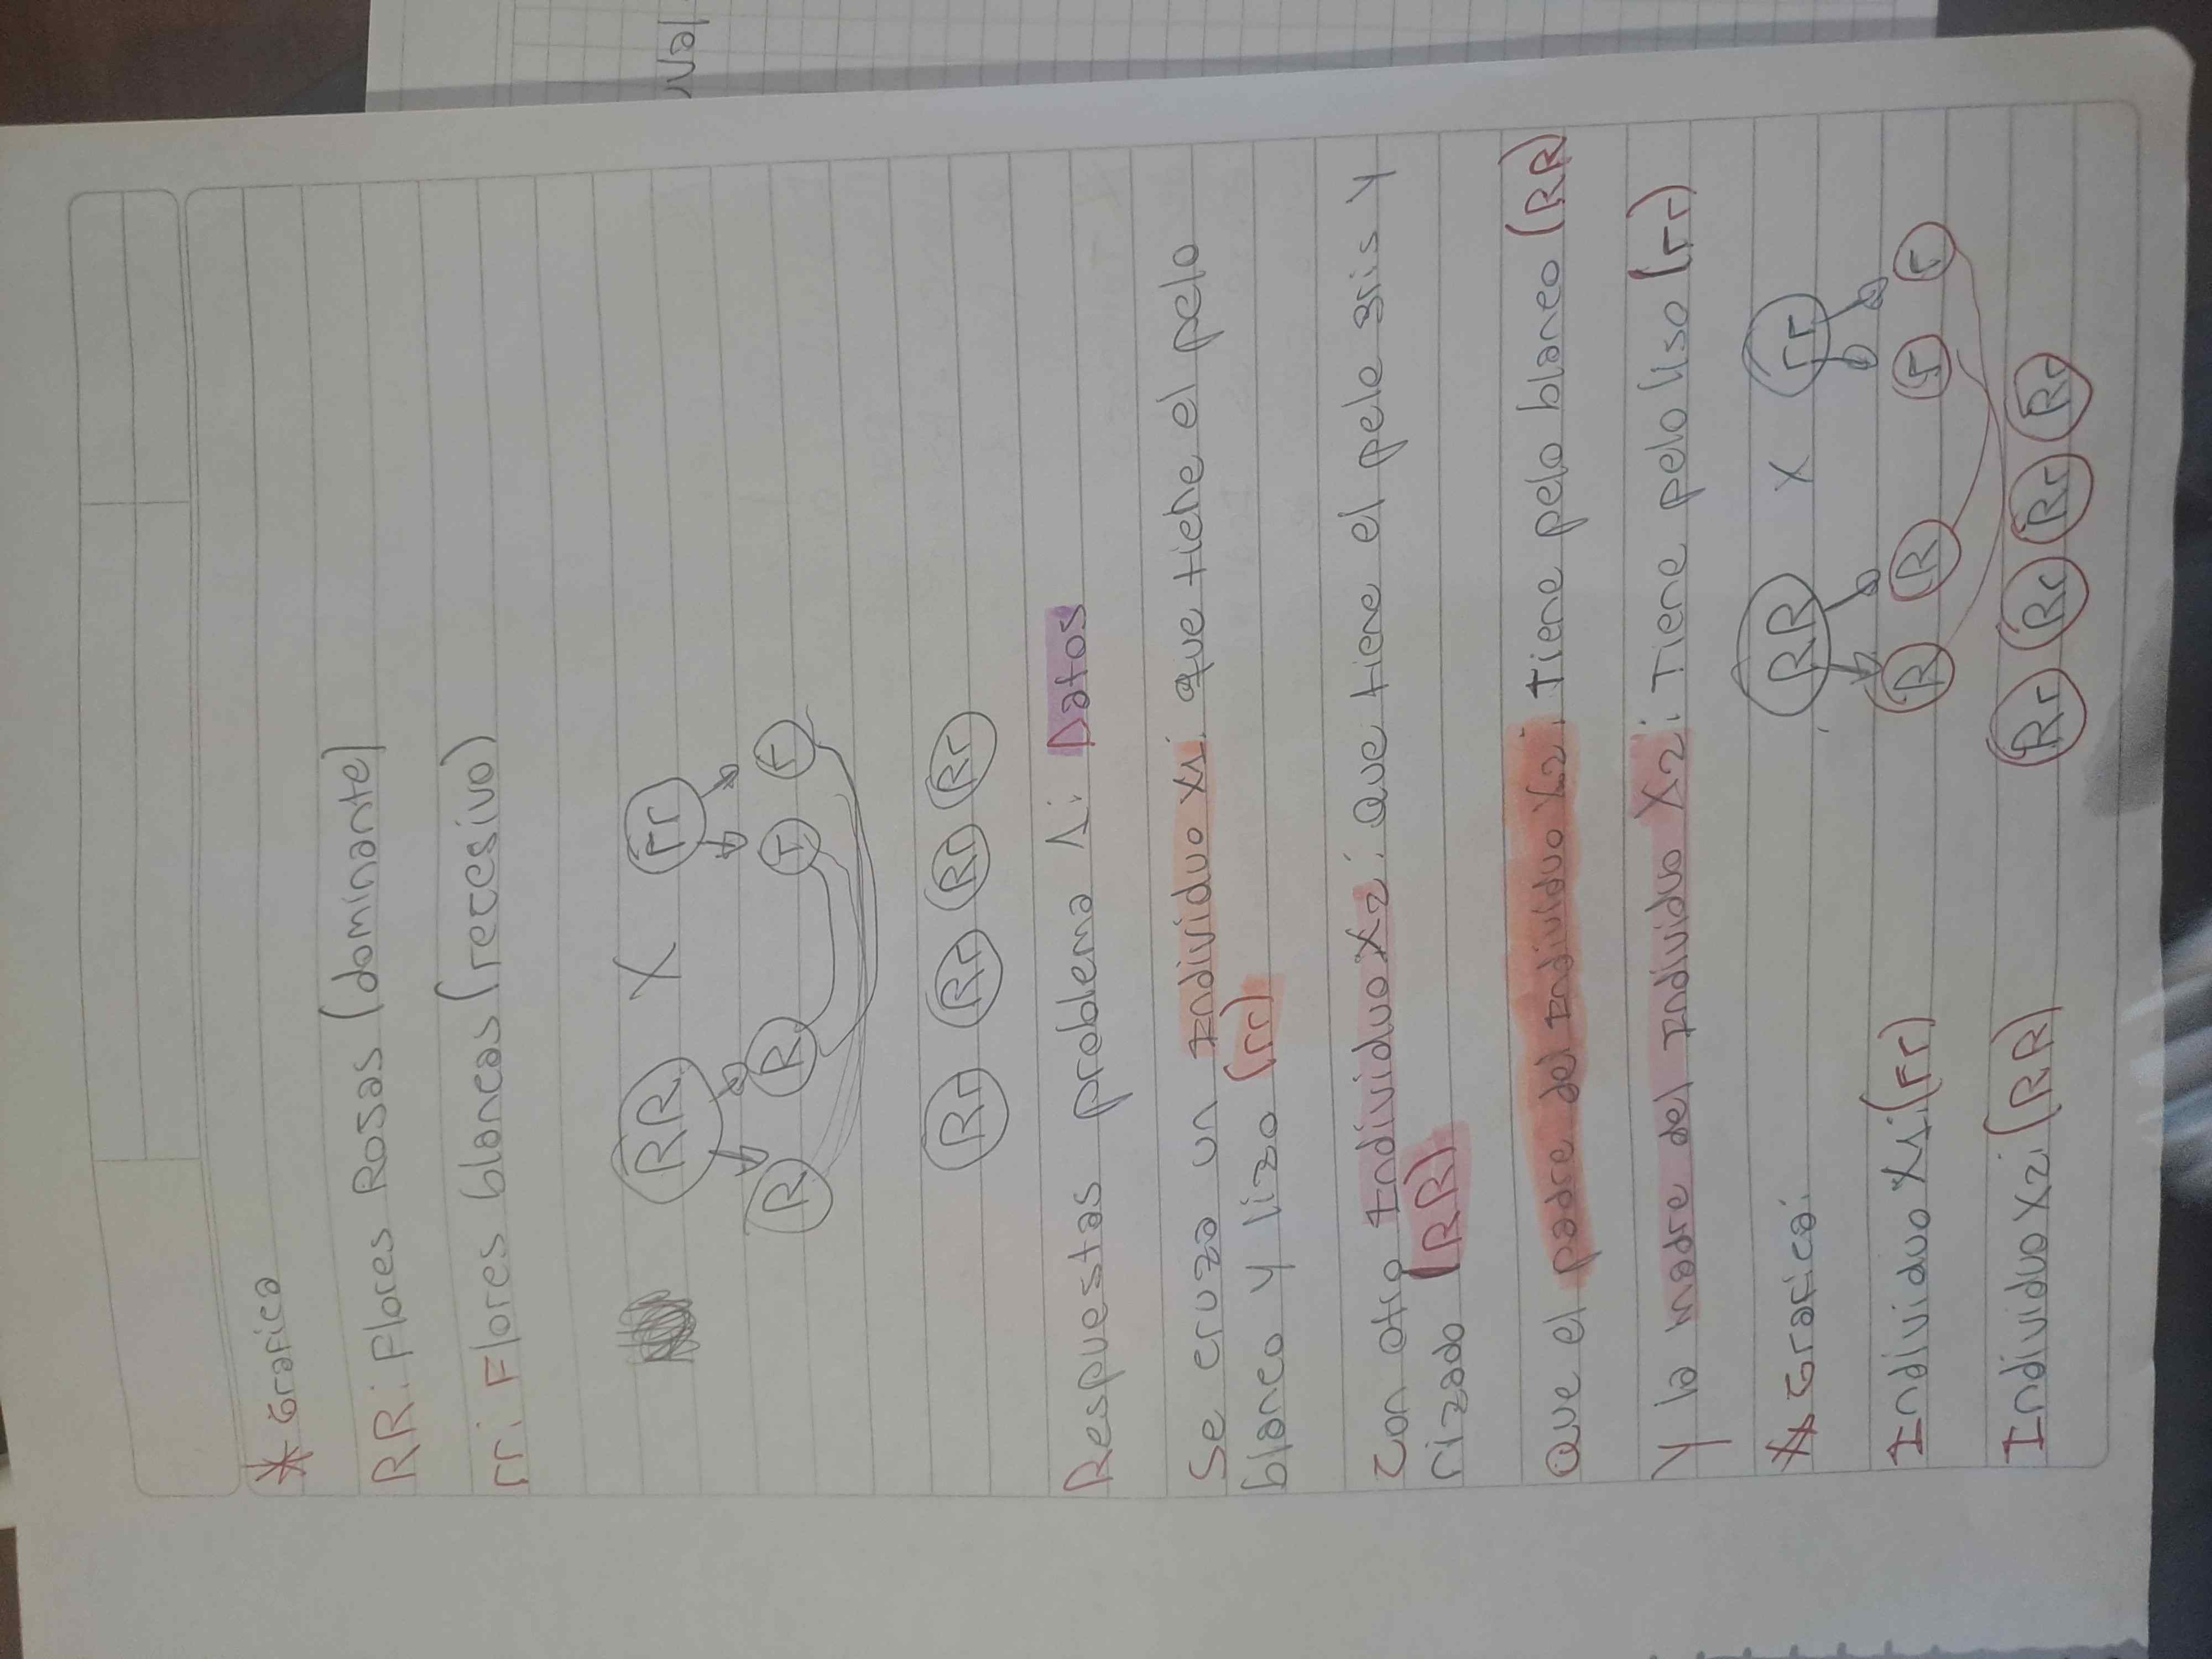 * Grafica
RR: Flores Rosas (dominante)
rr: Flores blancas (recesivo)
RR X rr
R R r r
Rr Rr Rr Rr
Respuestas problema 1: Datos
Se cruza un Individuo X1: que tiene el pelo
blanco y lizo (rr)
Con otro Individuo X2: Que tiene el pelo gris y
rizado (RR)
Que el padre del Individuo X2: Tiene pelo blanco (RR)
Y la madre del Individuo X2: Tiene pelo liso (rr)
* Grafica: RR X rr
Individuo X1: (rr) R R r r
Individuo X2: (RR) Rr Rr Rr Rr